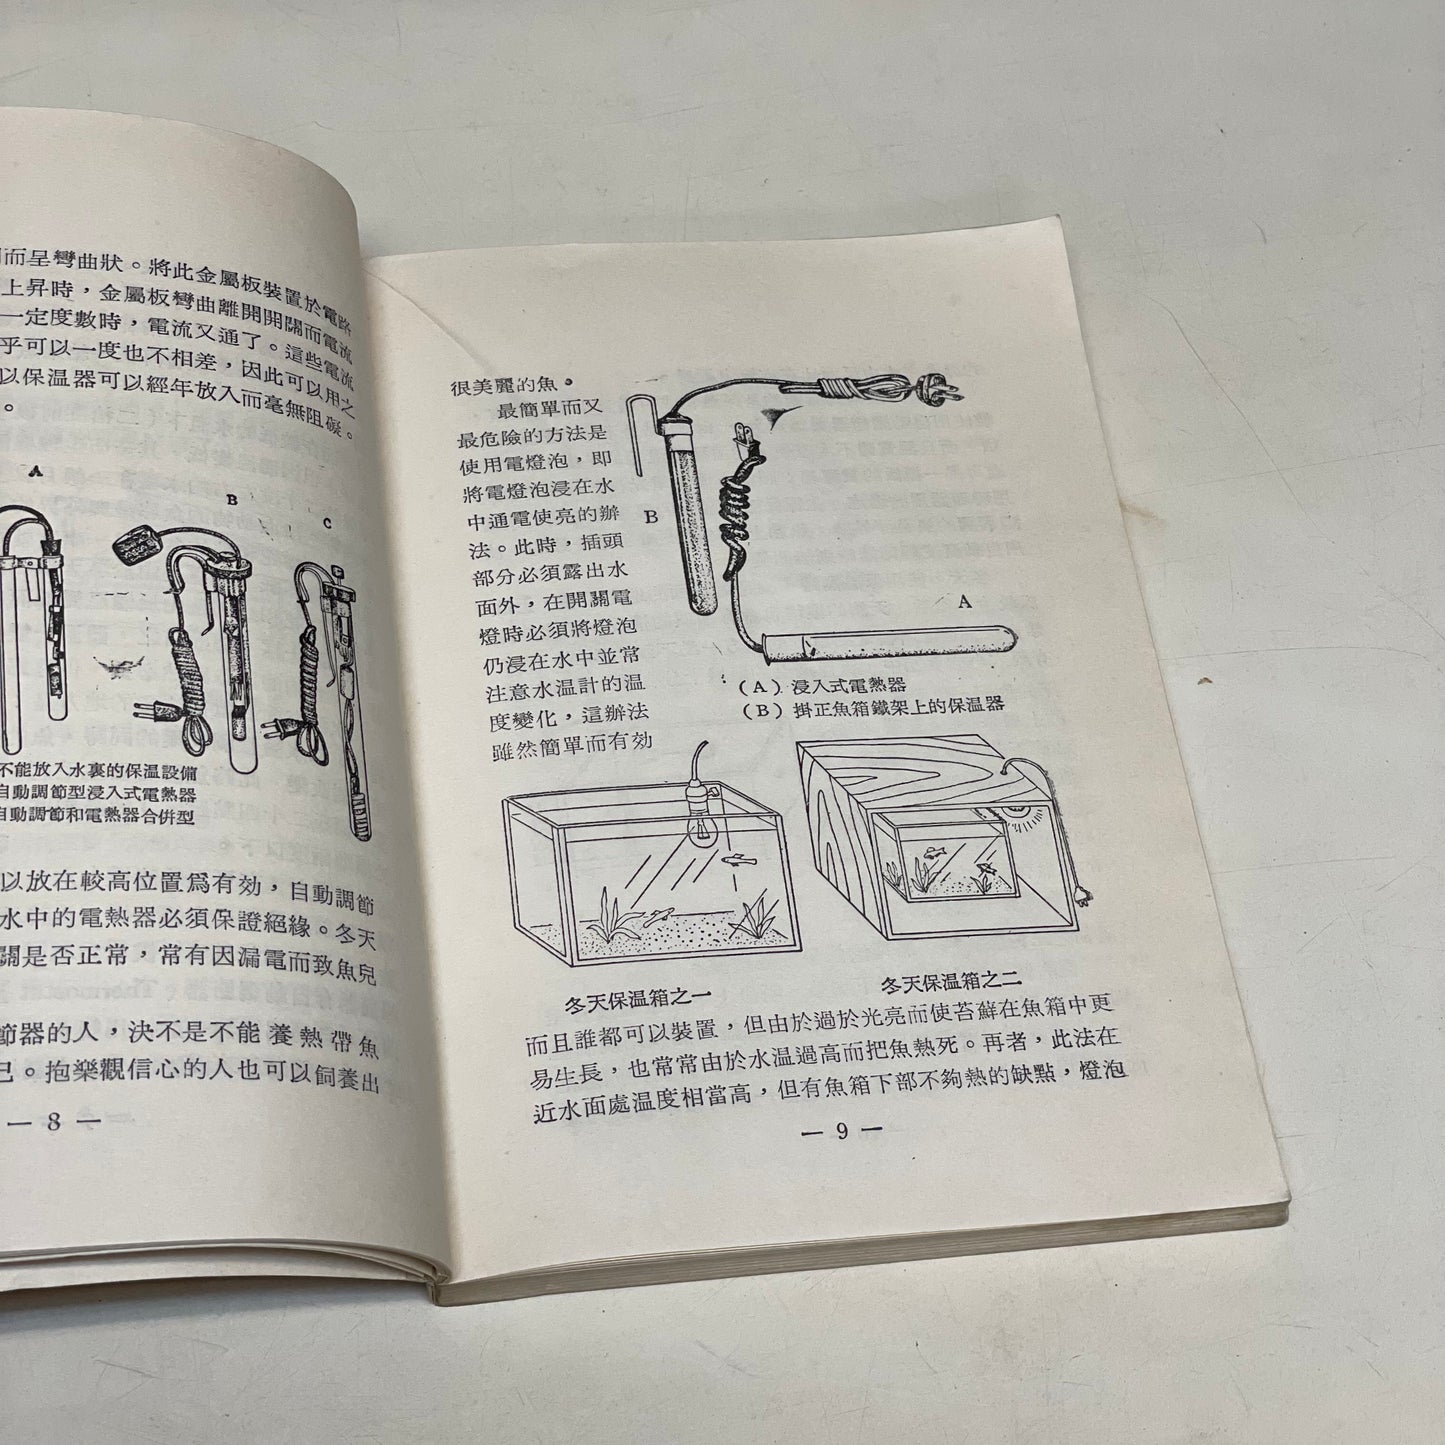 而呈彎曲狀。將此金屬板裝置於電路
上昇時，金屬板彎曲離開開關而電流
一定度數時，電流又通了。這些電流
乎可以一度也不相差，因此可以用之
以保温器可以經年放入而毫無阻礙。
。
A
B
C
不能放入水裏的保温設備
自動調節型浸入式電熱器
自動調節和電熱器合併型
以放在較高位置爲有効，自動調節
水中的電熱器必須保證絕緣。冬天
關是否正常，常有因漏電而致魚兒
節器的人，決不是不能養熱帶魚
已。抱樂觀信心的人也可以飼養出
— 8 —
很美麗的魚。
最簡單而又
最危險的方法是
使用電燈泡，即
將電燈泡浸在水
中通電使亮的辦
法。此時，插頭
部分必須露出水
面外，在開關電
燈時必須將燈泡
仍浸在水中並常
注意水温計的温
度變化，這辦法
雖然簡單而有効
B
A
（A）浸入式電熱器
（B）掛正魚箱鐵架上的保温器
冬天保温箱之一
冬天保温箱之二
而且誰都可以裝置，但由於過於光亮而使苔蘚在魚箱中更
易生長，也常常由於水温過高而把魚熱死。再者，此法在
近水面處温度相當高，但有魚箱下部不夠熱的缺點，燈泡
— 9 —